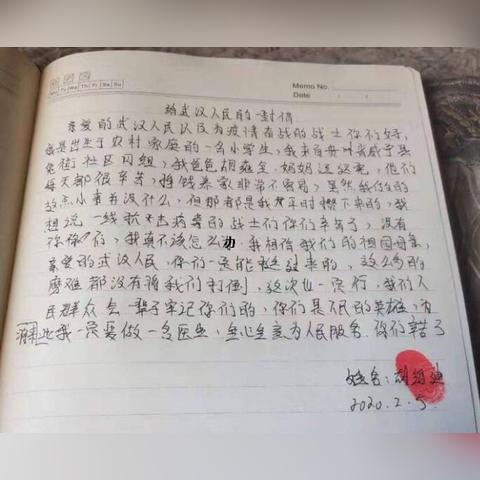 Memo No.
Date
Mo Tu We Th Fr Sa Su
给武汉人民的一封信
亲爱的武汉人民以及为疫情奋战的战士你们好,
我是出生于农村家庭的一名小学生,我来自贵州省威宁县
兔街社区四组,我爸爸胡雍 妈妈 他们
每天都很辛苦,挣钱养家非常不容易,虽然我们的
这点小事书没什么,但那都是我平时攒下来的,我
想说一线抗击病毒的战士们你们辛苦了,没有
你你们,我真不该怎么办,我相信我们的祖国母亲,
亲爱的武汉人民,你们一定能挺过来的,这么多的
磨难都没有将我们打倒,这次也一定行,我们人
民群众会一辈子牢记你们的,你们是人民的英雄,
我一定要做一名医生,全心全意为人民服务.你们辛苦了
姓名:胡绍迪
2020.2.5.